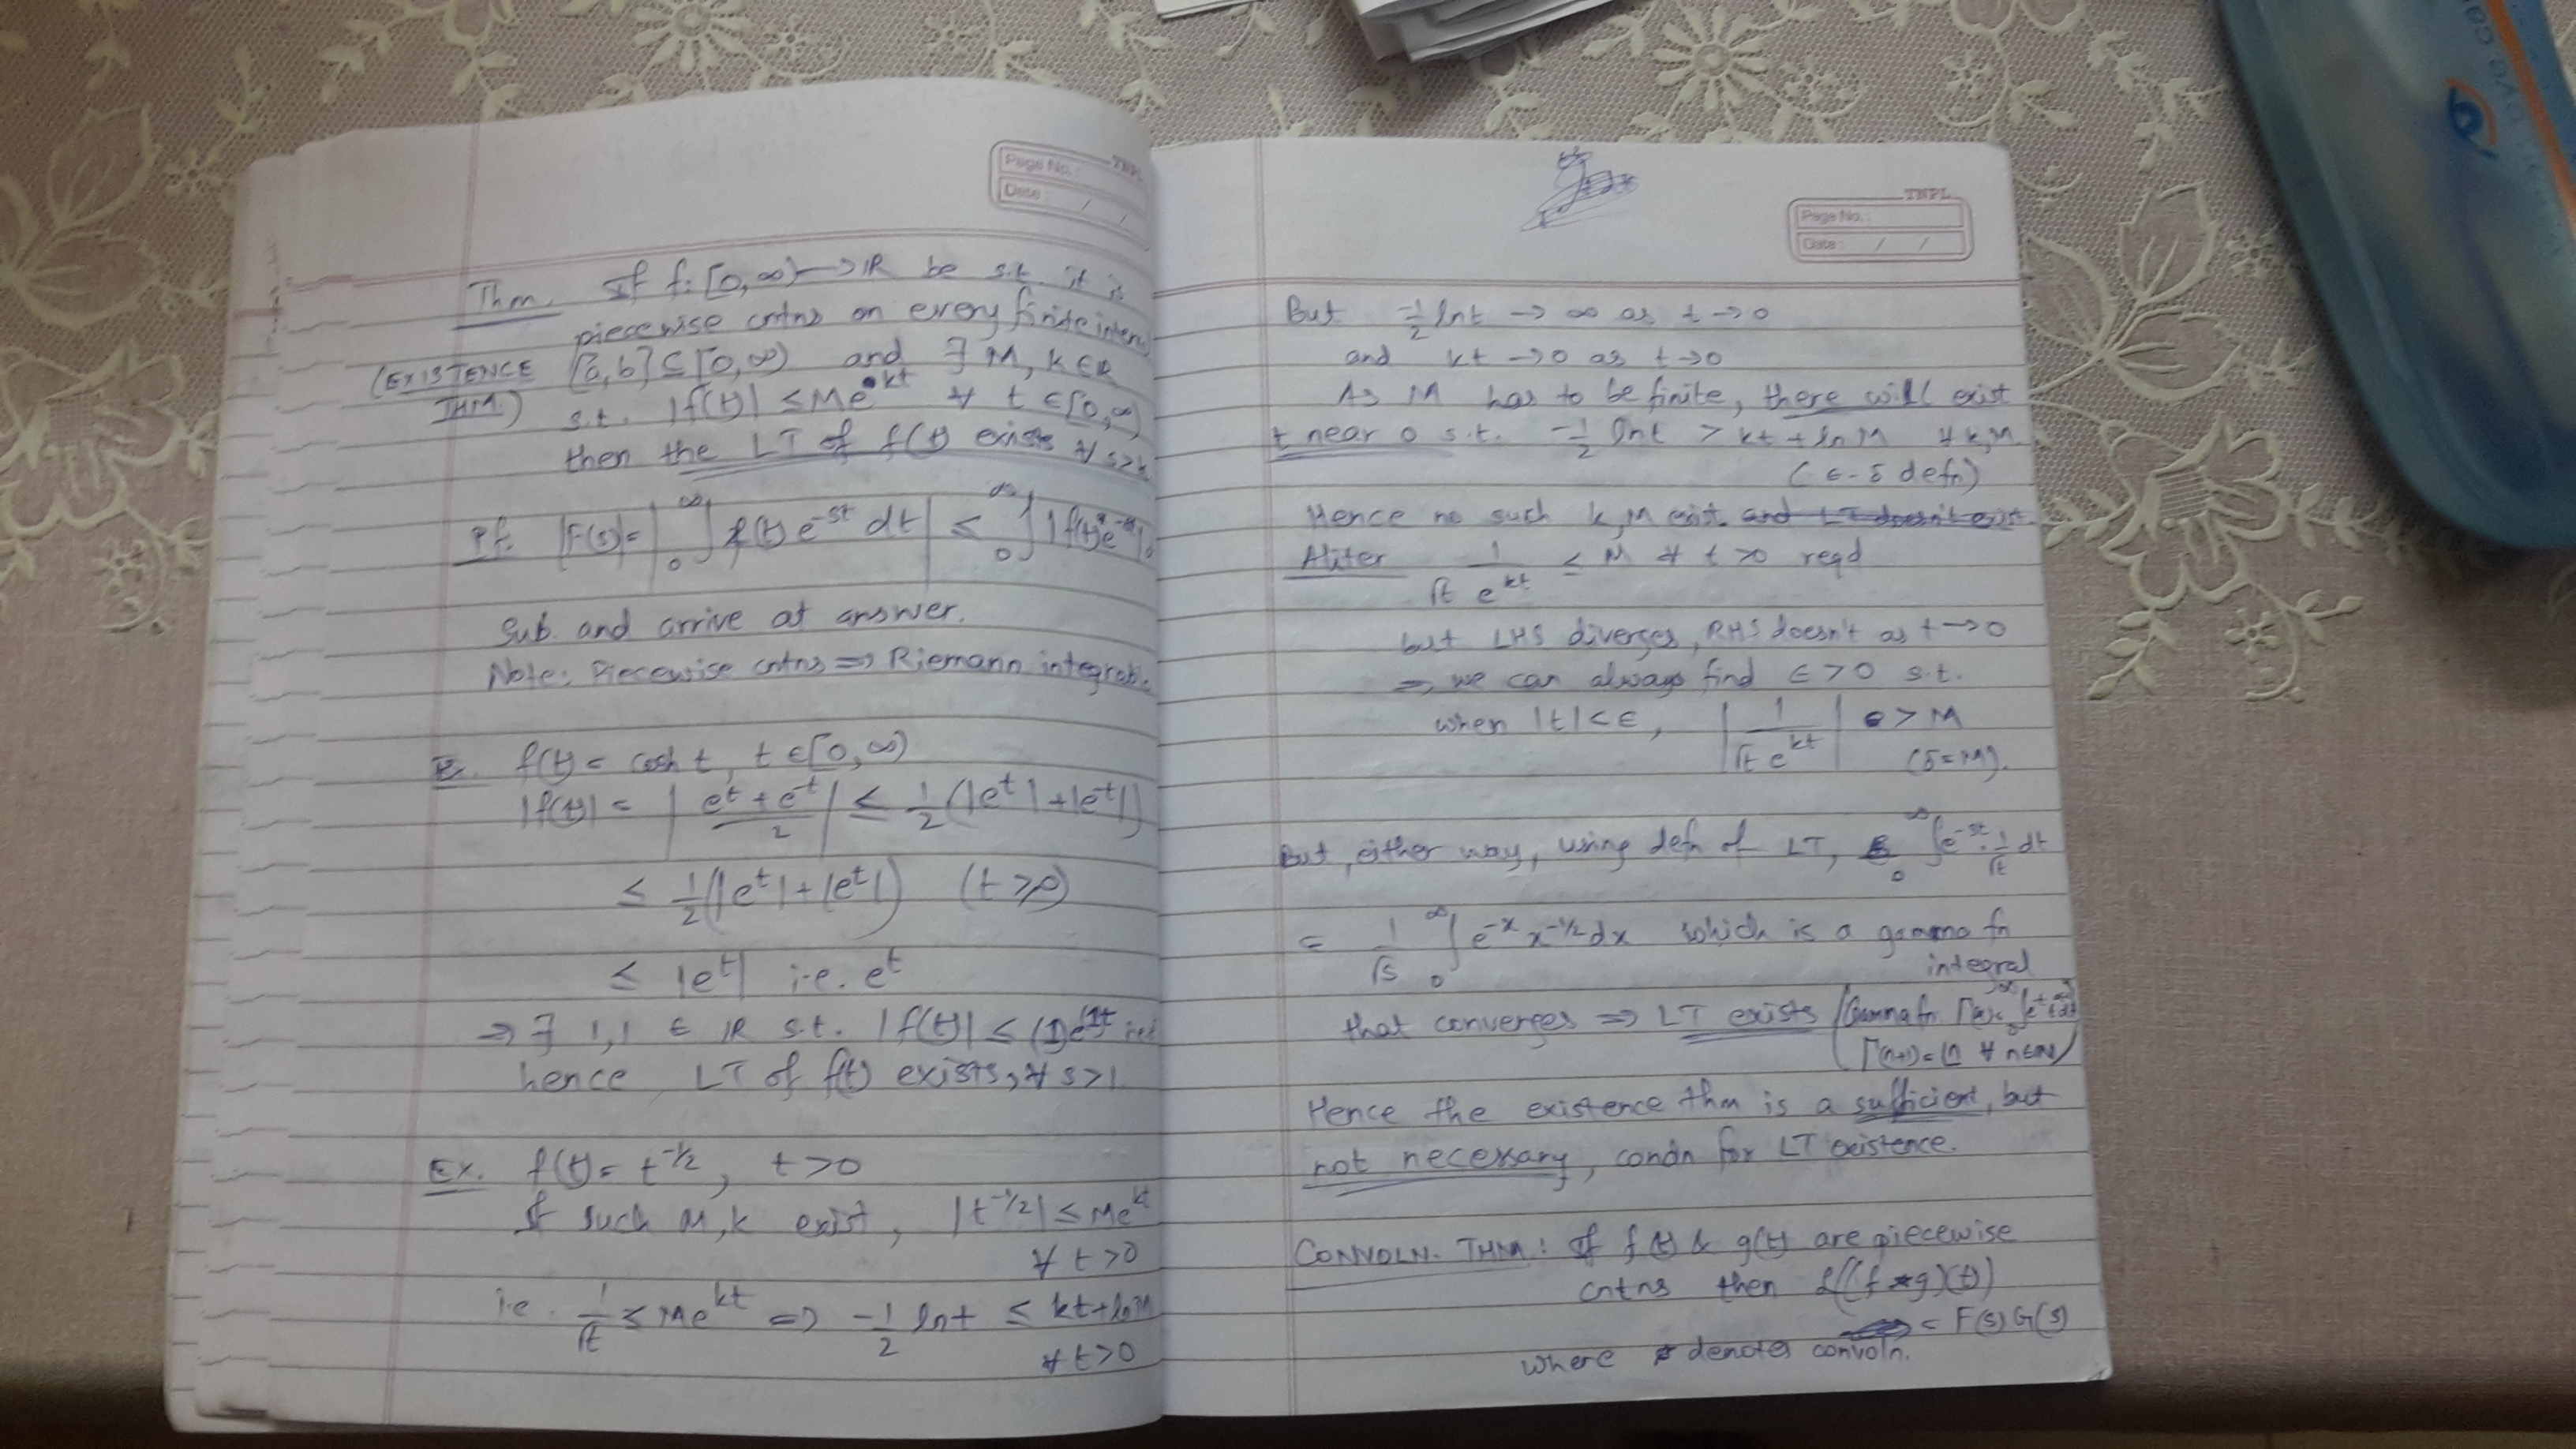 Page No.:
TNPL
Date: / /
Thm. If f: [0, ∞) → ℝ be s.t. it is
piecewise cntns on every finite interv
(EXISTENCE THM.) [a, b] ⊆ [0, ∞) and ∃ M, k ∈ ℝ
s.t. |f(t)| ≤ Me^kt ∀ t ∈ [0, ∞)
then the LT of f(t) exists ∀ s>k
Pf. |F(s)| = | ₀∫^∞ f(t) e^-st dt | ≤ ₀∫^∞ |f(t) e^-st|
Sub and arrive at answer.
Note: Piecewise cntns ⇒ Riemann integrab
Ex. f(t) = cosh t, t ∈ [0, ∞)
|f(t)| = | (e^t + e^-t)/2 | ≤ 1/2 (|e^t| + |e^-t|)
≤ 1/2 (|e^t| + |e^t|) (t ≥ 0)
≤ |e^t| i.e. e^t
⇒ ∃ 1, 1 ∈ ℝ s.t. |f(t)| ≤ (1)e^(1)t
hence LT of f(t) exists, ∀ s>1
Ex. f(t) = t^-1/2, t>0
If such M, k exist, |t^-1/2| ≤ Me^kt
∀ t>0
i.e. 1/√t ≤ Me^kt ⇒ -1/2 ln t ≤ kt + ln M
∀ t>0
TNPL
Page No.:
Date: / /
But -1/2 ln t → ∞ as t → 0
and kt → 0 as t → 0
As M has to be finite, there will exist
t near 0 s.t. -1/2 ln t > kt + ln M ∀ k, M
(ϵ-δ defn)
Hence no such k, M exist. and LT doesn't exist.
Aliter 1/(√t e^kt) ≤ M ∀ t > 0 reqd
but LHS diverges, RHS doesn't as t → 0
⇒ we can always find ϵ > 0 s.t.
when |t| < ϵ, | 1/(√t e^kt) | > M
(δ = M).
But, either way, using defn of LT, ₀∫^∞ e^-st · 1/√t dt
= 1/√s ₀∫^∞ e^-x x^-1/2 dx which is a gamma fn
integral
that converges ⇒ LT exists (Gamma fn.
Γ(n+1) = ⌊n ∀ n ∈ ℕ)
Hence the existence thm is a sufficient, but
not necessary, condn for LT existence.
CONVOLN. THM: If f(t) & g(t) are piecewise
cntns then ℒ((f * g)(t))
= F(s) G(s)
where * denotes convoln.